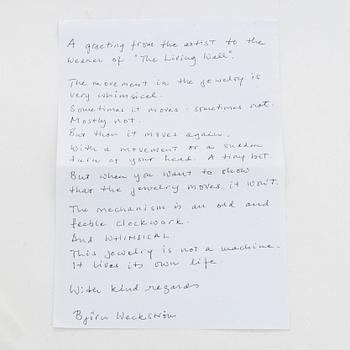 A greeting from the artist to the
wearer of "The Living Well".
The movement in the jewelry is
very whimsical.
Sometimes it moves - sometimes not.
Mostly not.
But then it moves again.
With a movement or a sudden
turn of your head. A tiny bit.
But when you want to show
that the jewelry moves. it won't.
The mechanism is an old and
feeble clockwork.
And WHIMSICAL.
This jewelry is not a machine.
It lives its own life.
With kind regards
Björn Weckström